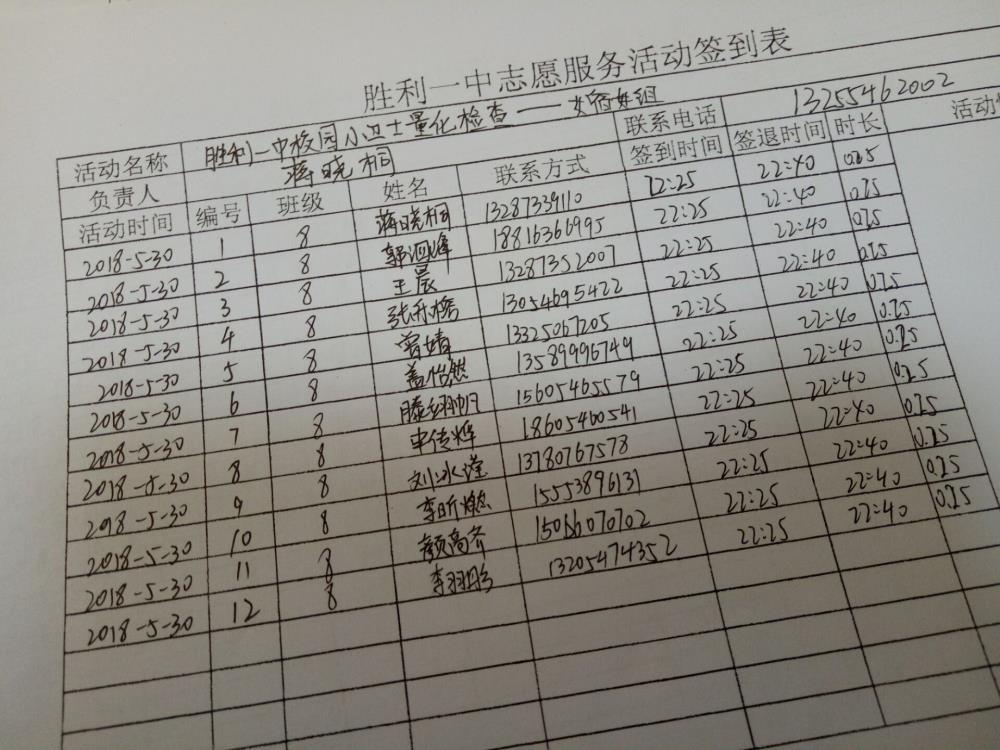 胜利一中志愿服务活动签到表
活动名称 胜利一中校园小卫士量化检查——女宿女组 联系电话 13255462002
负责人 蒋晓桐
活动时间 编号 班级 姓名 联系方式 签到时间 签退时间 时长
2018-5-30 1 8 蒋晓桐 13287339110 22:25 22:40 0.25
2018-5-30 2 8 18816366995 22:25 22:40 0.25
2018-5-30 3 8 王晨 13287352007 22:25 22:40 0.25
2018-5-30 4 8 13054695422 22:25 22:40 0.25
2018-5-30 5 8 曾婧 13325067205 22:25 22:40 0.25
2018-5-30 6 8 盖怡然 13589996749 22:25 22:40 0.25
2018-5-30 7 8 15605465579 22:25 22:40 0.25
2018-5-30 8 8 申传烨 18605460541 22:25 22:40 0.25
2018-5-30 9 8 刘冰莹 13780767578 22:25 22:40 0.25
2018-5-30 10 8 李昕燃 15553896131 22:25 22:40 0.25
2018-5-30 11 8 颜高齐 15066070702 22:25 22:40 0.25
2018-5-30 12 8 李羽彤 13205474352 22:25 22:40 0.25